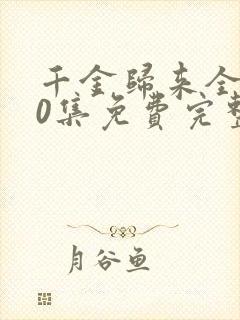 千金歸來全
0集免費完整
月谷鱼